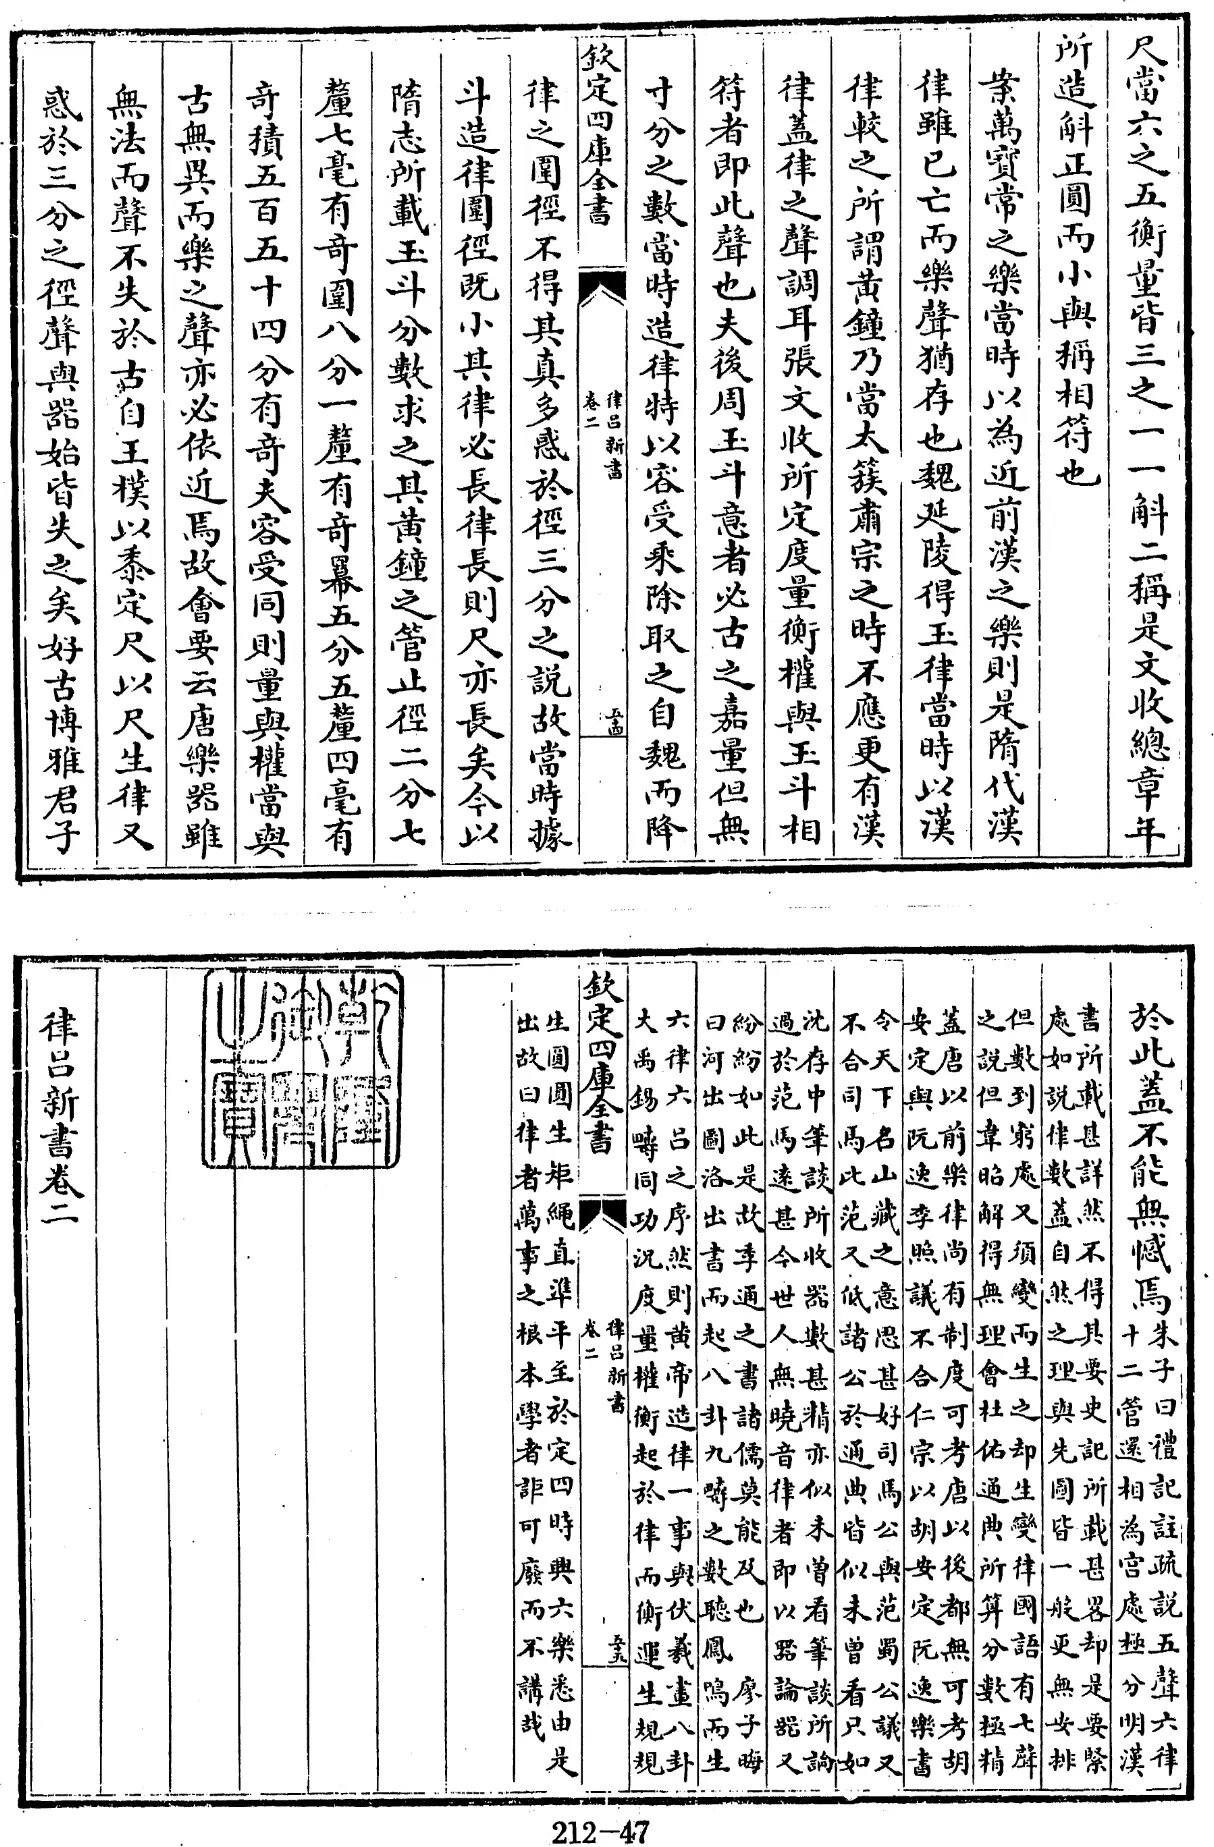 尺當六之五衡量皆三之一一斛二稱是文收總章年
所造斛正圓而小與稱相符也
案萬寶常之樂當時以為近前漢之樂則是隋代漢
律雖已亡而樂聲猶存也魏延陵得玉律當時以漢
律較之所謂黃鐘乃當太簇肅宗之時不應更有漢
律蓋律之聲調耳張文收所定度量衡權與玉斗相
符者即此聲也夫後周玉斗意者必古之嘉量但無
寸分之數當時造律特以容受乘除取之自魏而降
欽定四庫全書
律呂新書
卷二
五十四
律之圍徑不得其真多惑於徑三分之說故當時據
斗造律圍徑既小其律必長律長則尺亦長矣今以
隋志所載玉斗分數求之其黃鐘之管止徑二分七
釐七毫有奇圍八分一釐有奇冪五分五釐四毫有
奇積五百五十四分有奇夫容受同則量與權當與
古無異而樂之聲亦必依近焉故會要云唐樂器雖
無法而聲不失於古自王樸以黍定尺以尺生律又
惑於三分之徑聲與器始皆失之矣好古博雅君子
於此蓋不能無憾焉
朱子曰禮記註疏說五聲六律
十二管還相為宮處極分明漢
書所載甚詳然不得其要史記所載甚畧却是要緊
處如說律數蓋自然之理與先圖皆一般更無安排
但數到窮處又須變而生之却生變律國語有七聲
之說但韋昭解得無理會杜佑通典所算分數極精
蓋唐以前樂律尚有制度可考唐以後都無可考胡
安定與阮逸李照議不合仁宗以胡安定阮逸樂書
令天下名山藏之意思甚好司馬公與范蜀公議又
不合司馬此范又低諸公於通典皆似未曾看只如
沈存中筆談所收器數甚精亦似未曾看筆談所論
過於范馬遠甚今世人無曉音律者即以器論器又
紛紛如此是故季通之書諸儒莫能及也 廖子晦
曰河出圖洛出書而起八卦九疇之數聽鳳鳴而生
六律六呂之序然則黃帝造律一事與伏羲畫八卦
大禹錫疇同功況度量權衡起於律而衡運生規規
欽定四庫全書
律呂新書
卷二
五十五
生圓圓生矩繩直準平至於定四時興六樂悉由是
出故曰律者萬事之根本學者詎可廢而不講哉
乾隆御覽之寶
律呂新書卷二
212-47